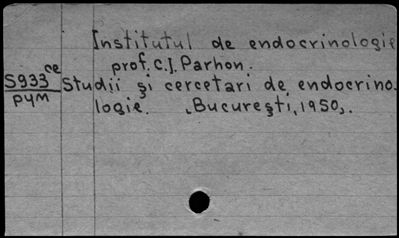 Institutul de endocrinologie
prof. C.I. Parhon.
S933 ce
РУМ
Studii şi cercetari de endocrino-
logie. Bucureşti, 1950,.